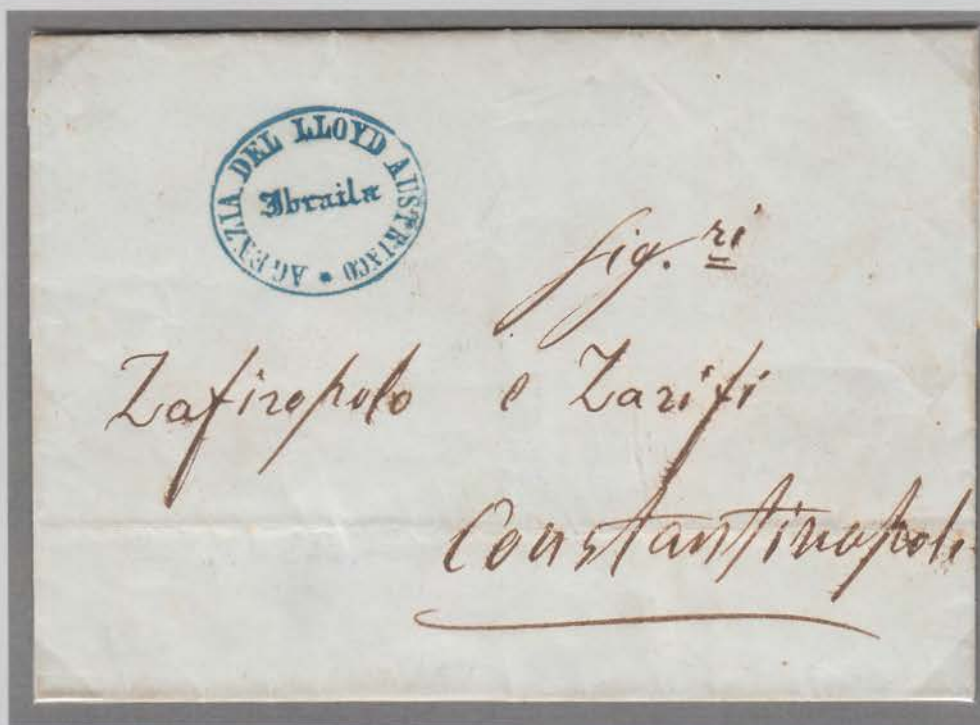 AGENZIA DEL LLOYD AUSTRIACO
Ibraila
Sig.ri
Zafiropolo e Zarifi
Constantinopoli